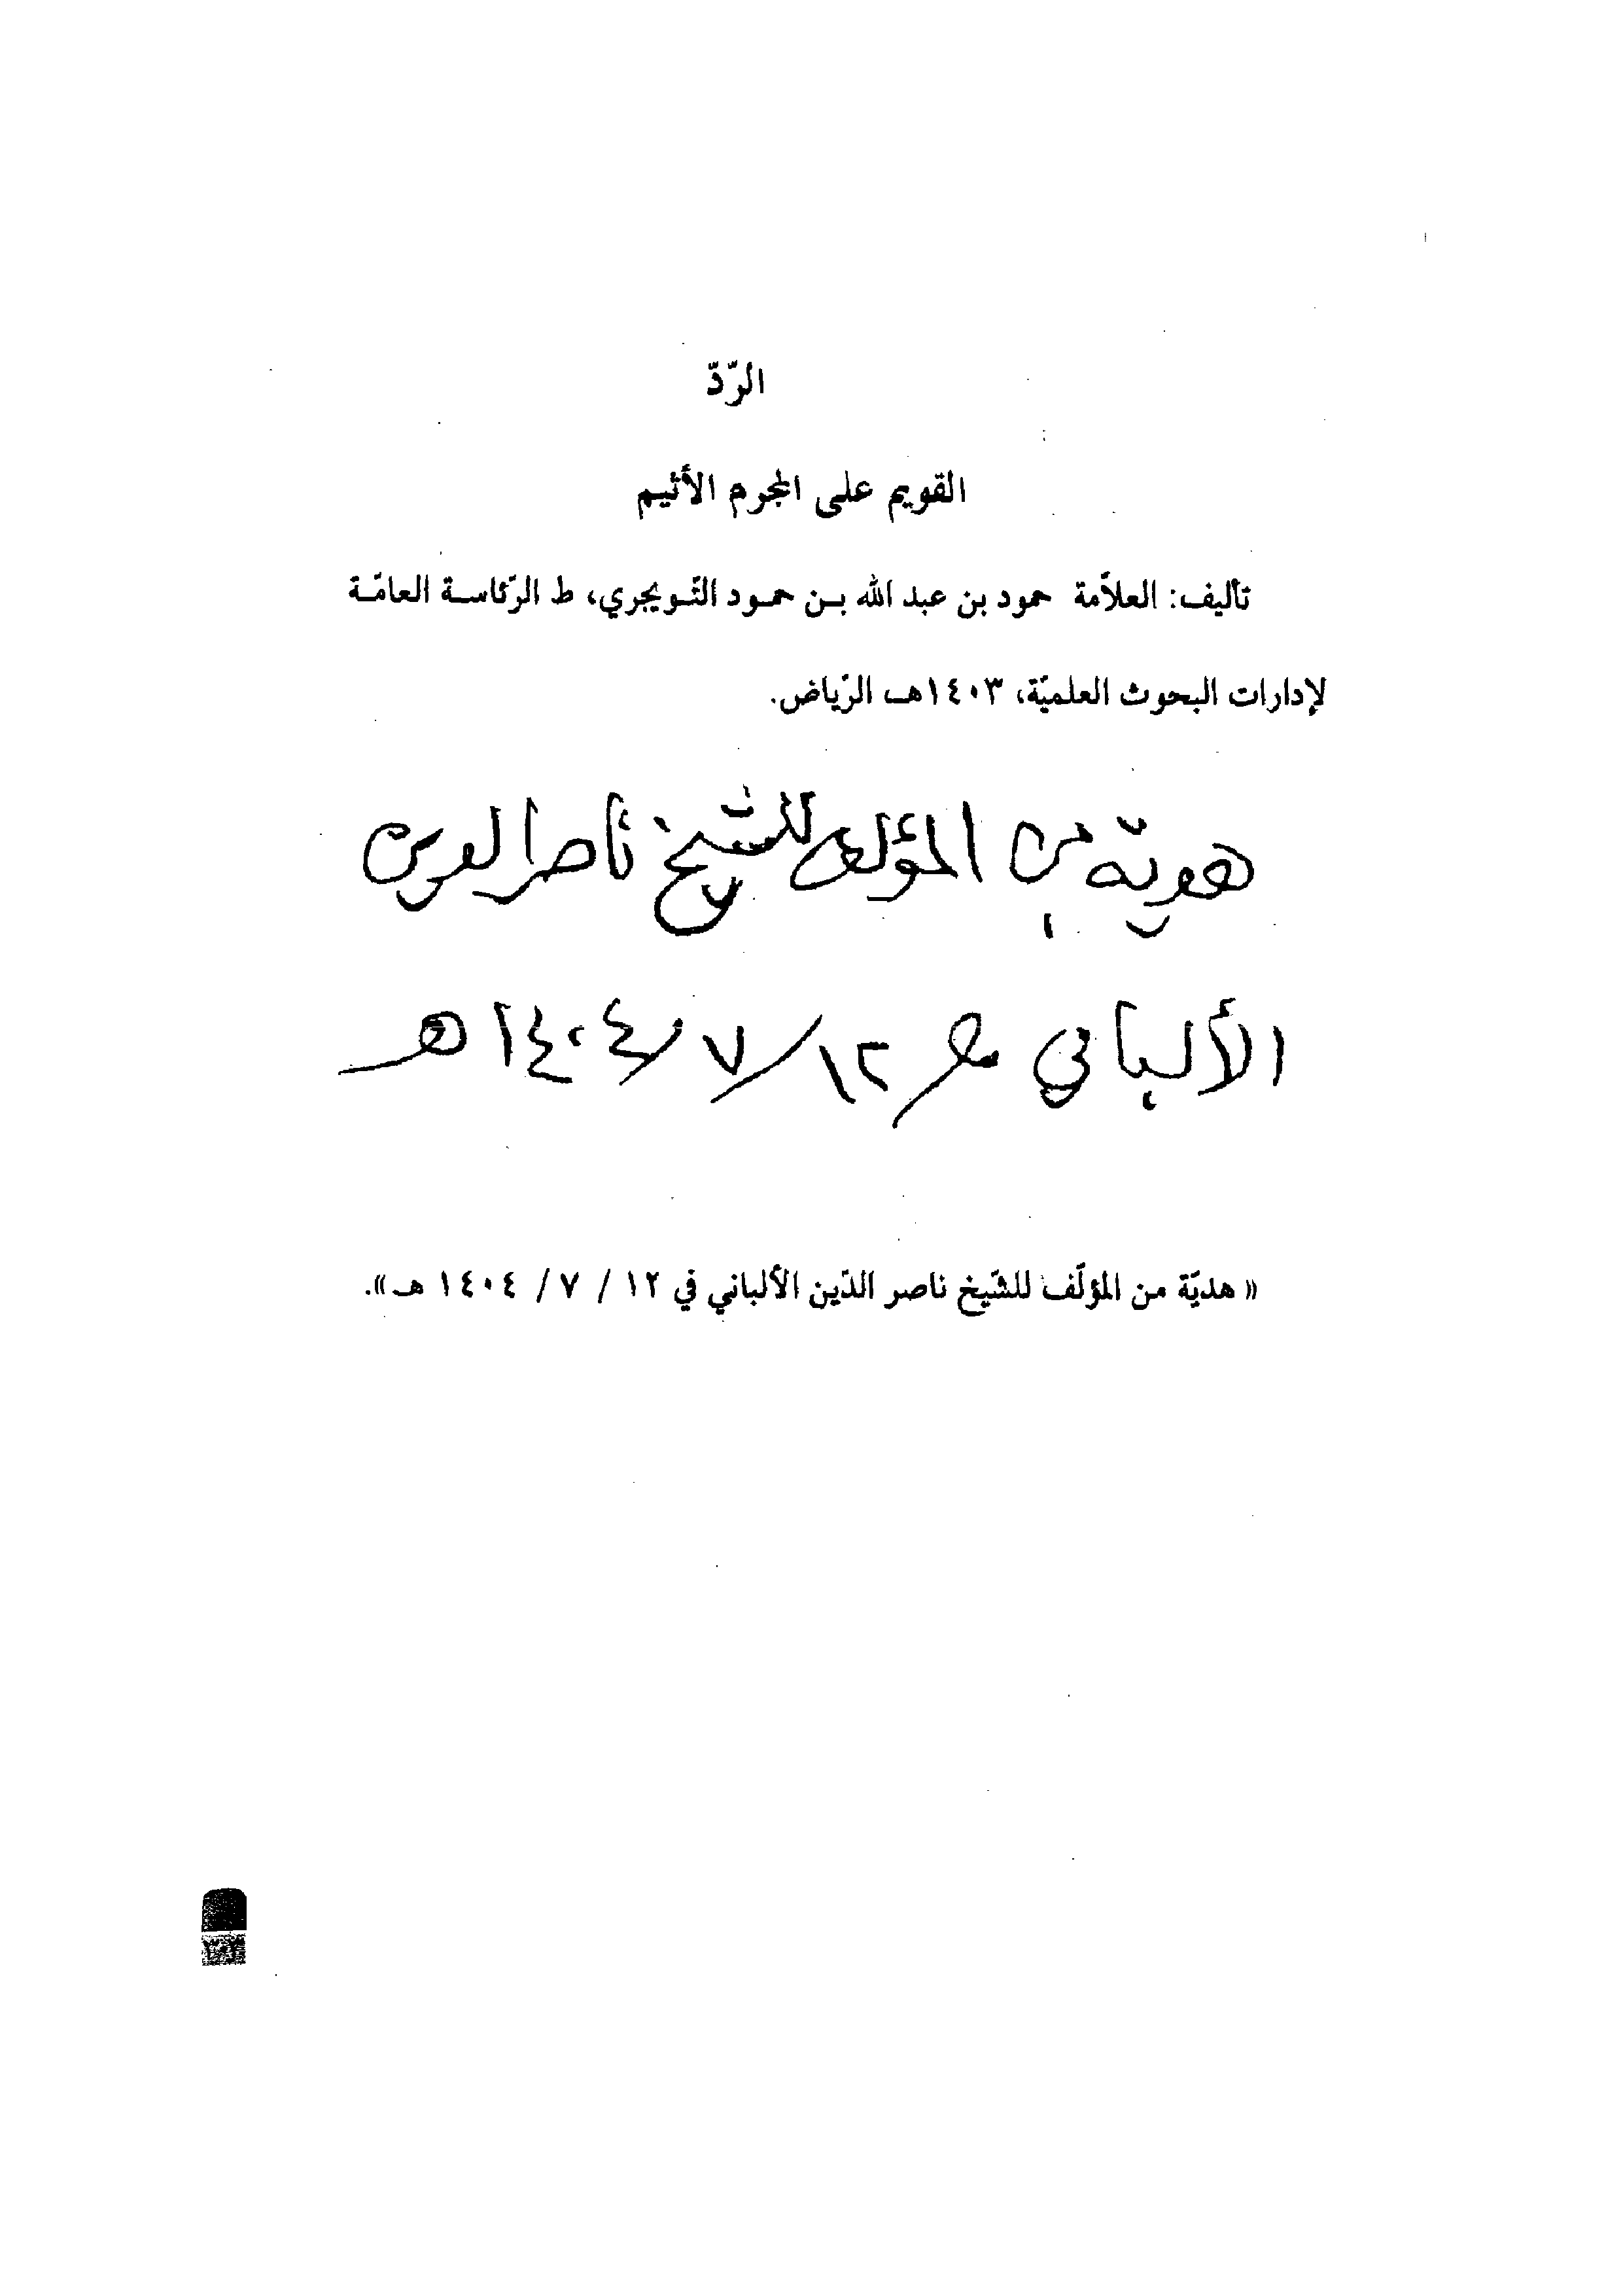 الرّدّ
القويم على المجرم الأثيم
تأليف: العلاّمة حمود بن عبد الله بن حمود التّويجري، ط الرّئاسة العامّة
لإدارات البحوث العلميّة، ١٤٠٣هـ الرّياض.
هديّة من المؤلف للشيخ ناصر الدين
الألباني في ١٢/٧/١٤٠٤هـ
« هديّة من المؤلّف للشّيخ ناصر الدّين الألباني في ١٢ / ٧ / ١٤٠٤ هـ».